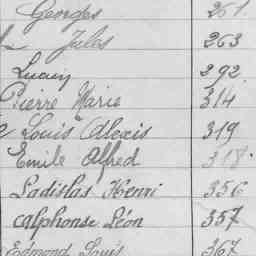 Georges 261
Jules 263
Lucien 292
Pierre Marie 314
Louis Alexis 319
Emile Alfred 318
Ladislas Henri 356
Alphonse Léon 357
Edmond Louis 367